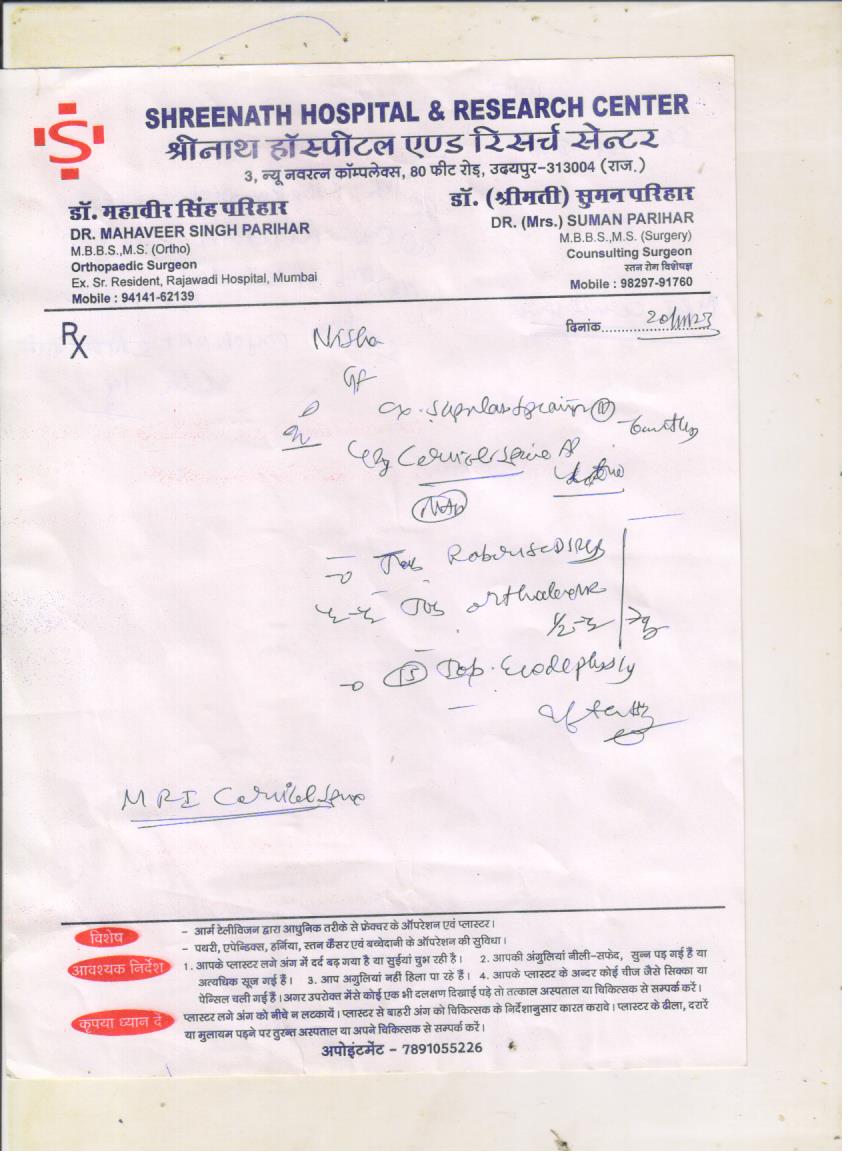 SHREENATH HOSPITAL & RESEARCH CENTER
श्रीनाथ हॉस्पीटल एण्ड रिसर्च सेन्टर
3, न्यू नवरत्न कॉम्पलेक्स, 80 फीट रोड़, उदयपुर-313004 (राज.)
डॉ. महावीर सिंह परिहार
DR. MAHAVEER SINGH PARIHAR
M.B.B.S.,M.S. (Ortho)
Orthopaedic Surgeon
Ex. Sr. Resident, Rajawadi Hospital, Mumbai
Mobile : 94141-62139
डॉ. (श्रीमती) सुमन परिहार
DR. (Mrs.) SUMAN PARIHAR
M.B.B.S.,M.S. (Surgery)
Counsulting Surgeon
स्तन रोग विशेषज्ञ
Mobile : 98297-91760
Rx
दिनांक
Nisha
Cervical Spine AP
Tab
Tab
MRI Cervical Spine
विशेष
- आर्म टेलीविजन द्वारा आधुनिक तरीके से फ्रेक्चर के ऑपरेशन एवं प्लास्टर।
- पथरी, एपेन्डिक्स, हर्निया, स्तन कैंसर एवं बच्चेदानी के ऑपरेशन की सुविधा।
आवश्यक निर्देश
1. आपके प्लास्टर लगे अंग में दर्द बढ़ गया है या सुईयां चुभ रही है। 2. आपकी अंगुलियां नीली-सफेद, सुन्न पड़ गई हैं या
अत्यधिक सूज गई हैं। 3. आप अगुलियां नहीं हिला पा रहे हैं। 4. आपके प्लास्टर के अन्दर कोई चीज जैसे सिक्का या
पेन्सिल चली गई हैं। अगर उपरोक्त में से कोई एक भी दलक्षण दिखाई पड़े तो तत्काल अस्पताल या चिकित्सक से सम्पर्क करें।
कृपया ध्यान दे
प्लास्टर लगे अंग को नीचे न लटकायें। प्लास्टर से बाहरी अंग को चिकित्सक के निर्देशानुसार कारत करावे। प्लास्टर के ढीला, दरारें
या मुलायम पड़ने पर तुरन्त अस्पताल या अपने चिकित्सक से सम्पर्क करें।
अपोइंटमेंट - 7891055226